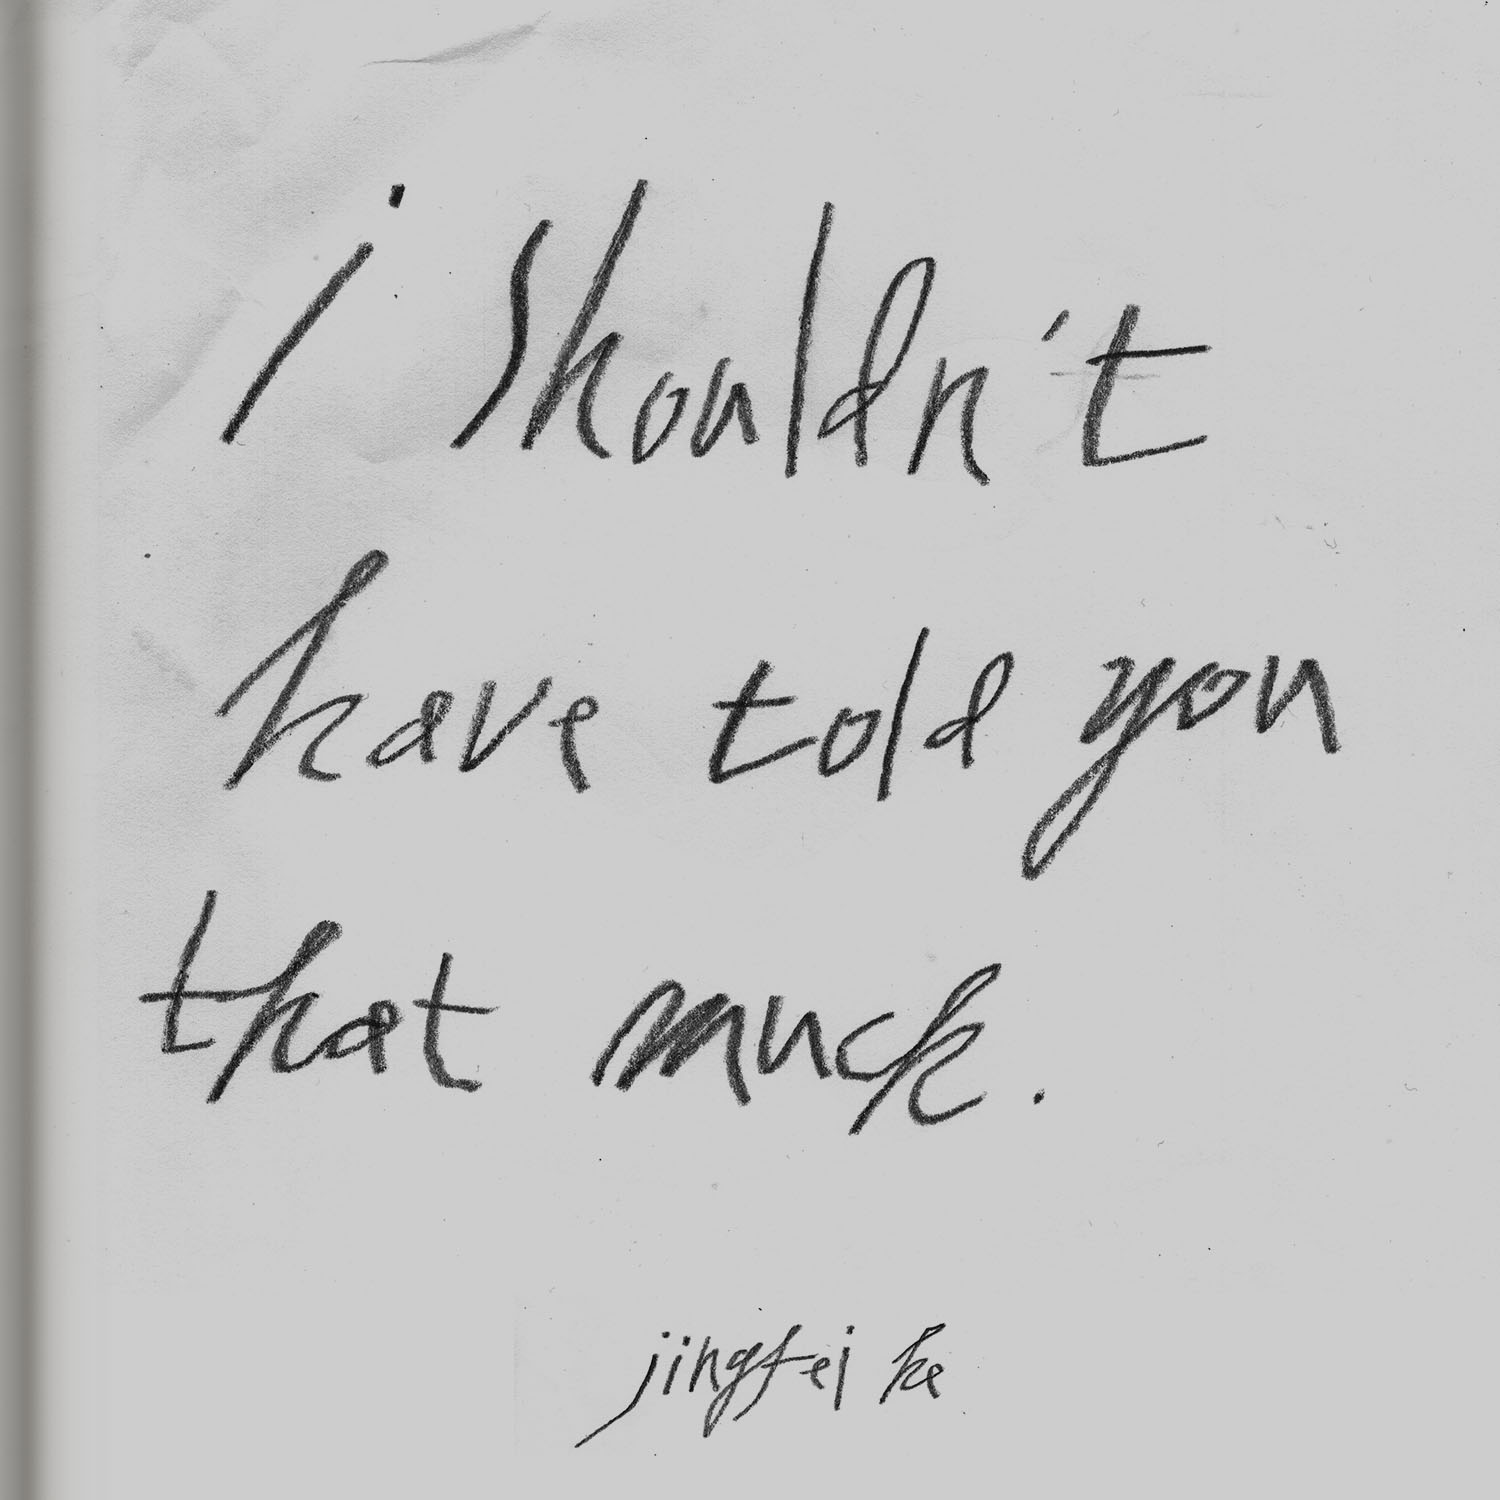 i shouldn't
have told you
that much.
jingfei ke